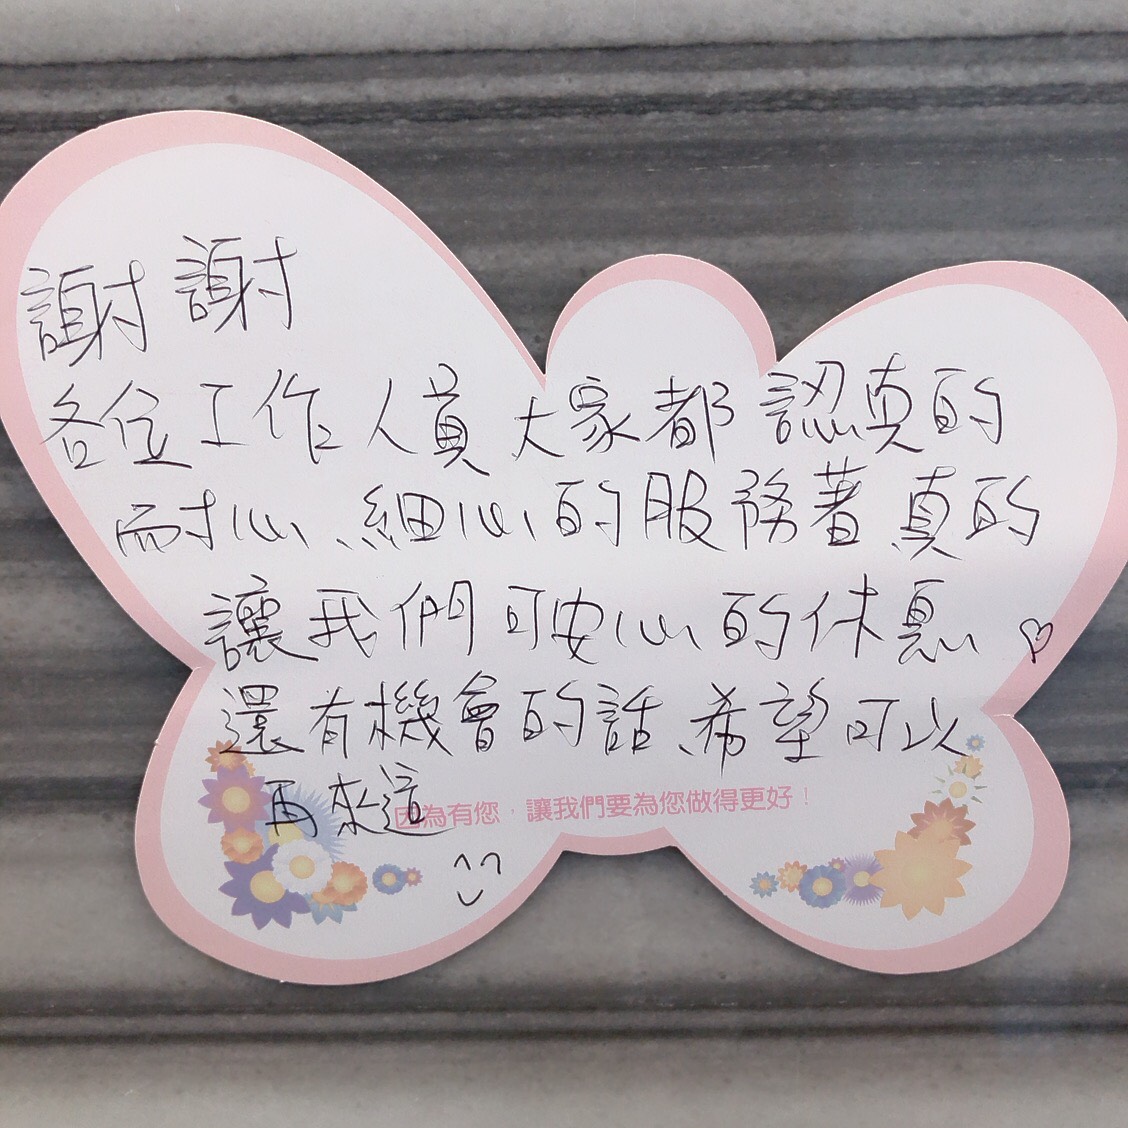 謝謝
各位工作人員大家都認真的
耐心、細心的服務著真的
讓我們可安心的休息♡
還有機會的話、希望可以
再來這
因為有您，讓我們要為您做得更好！